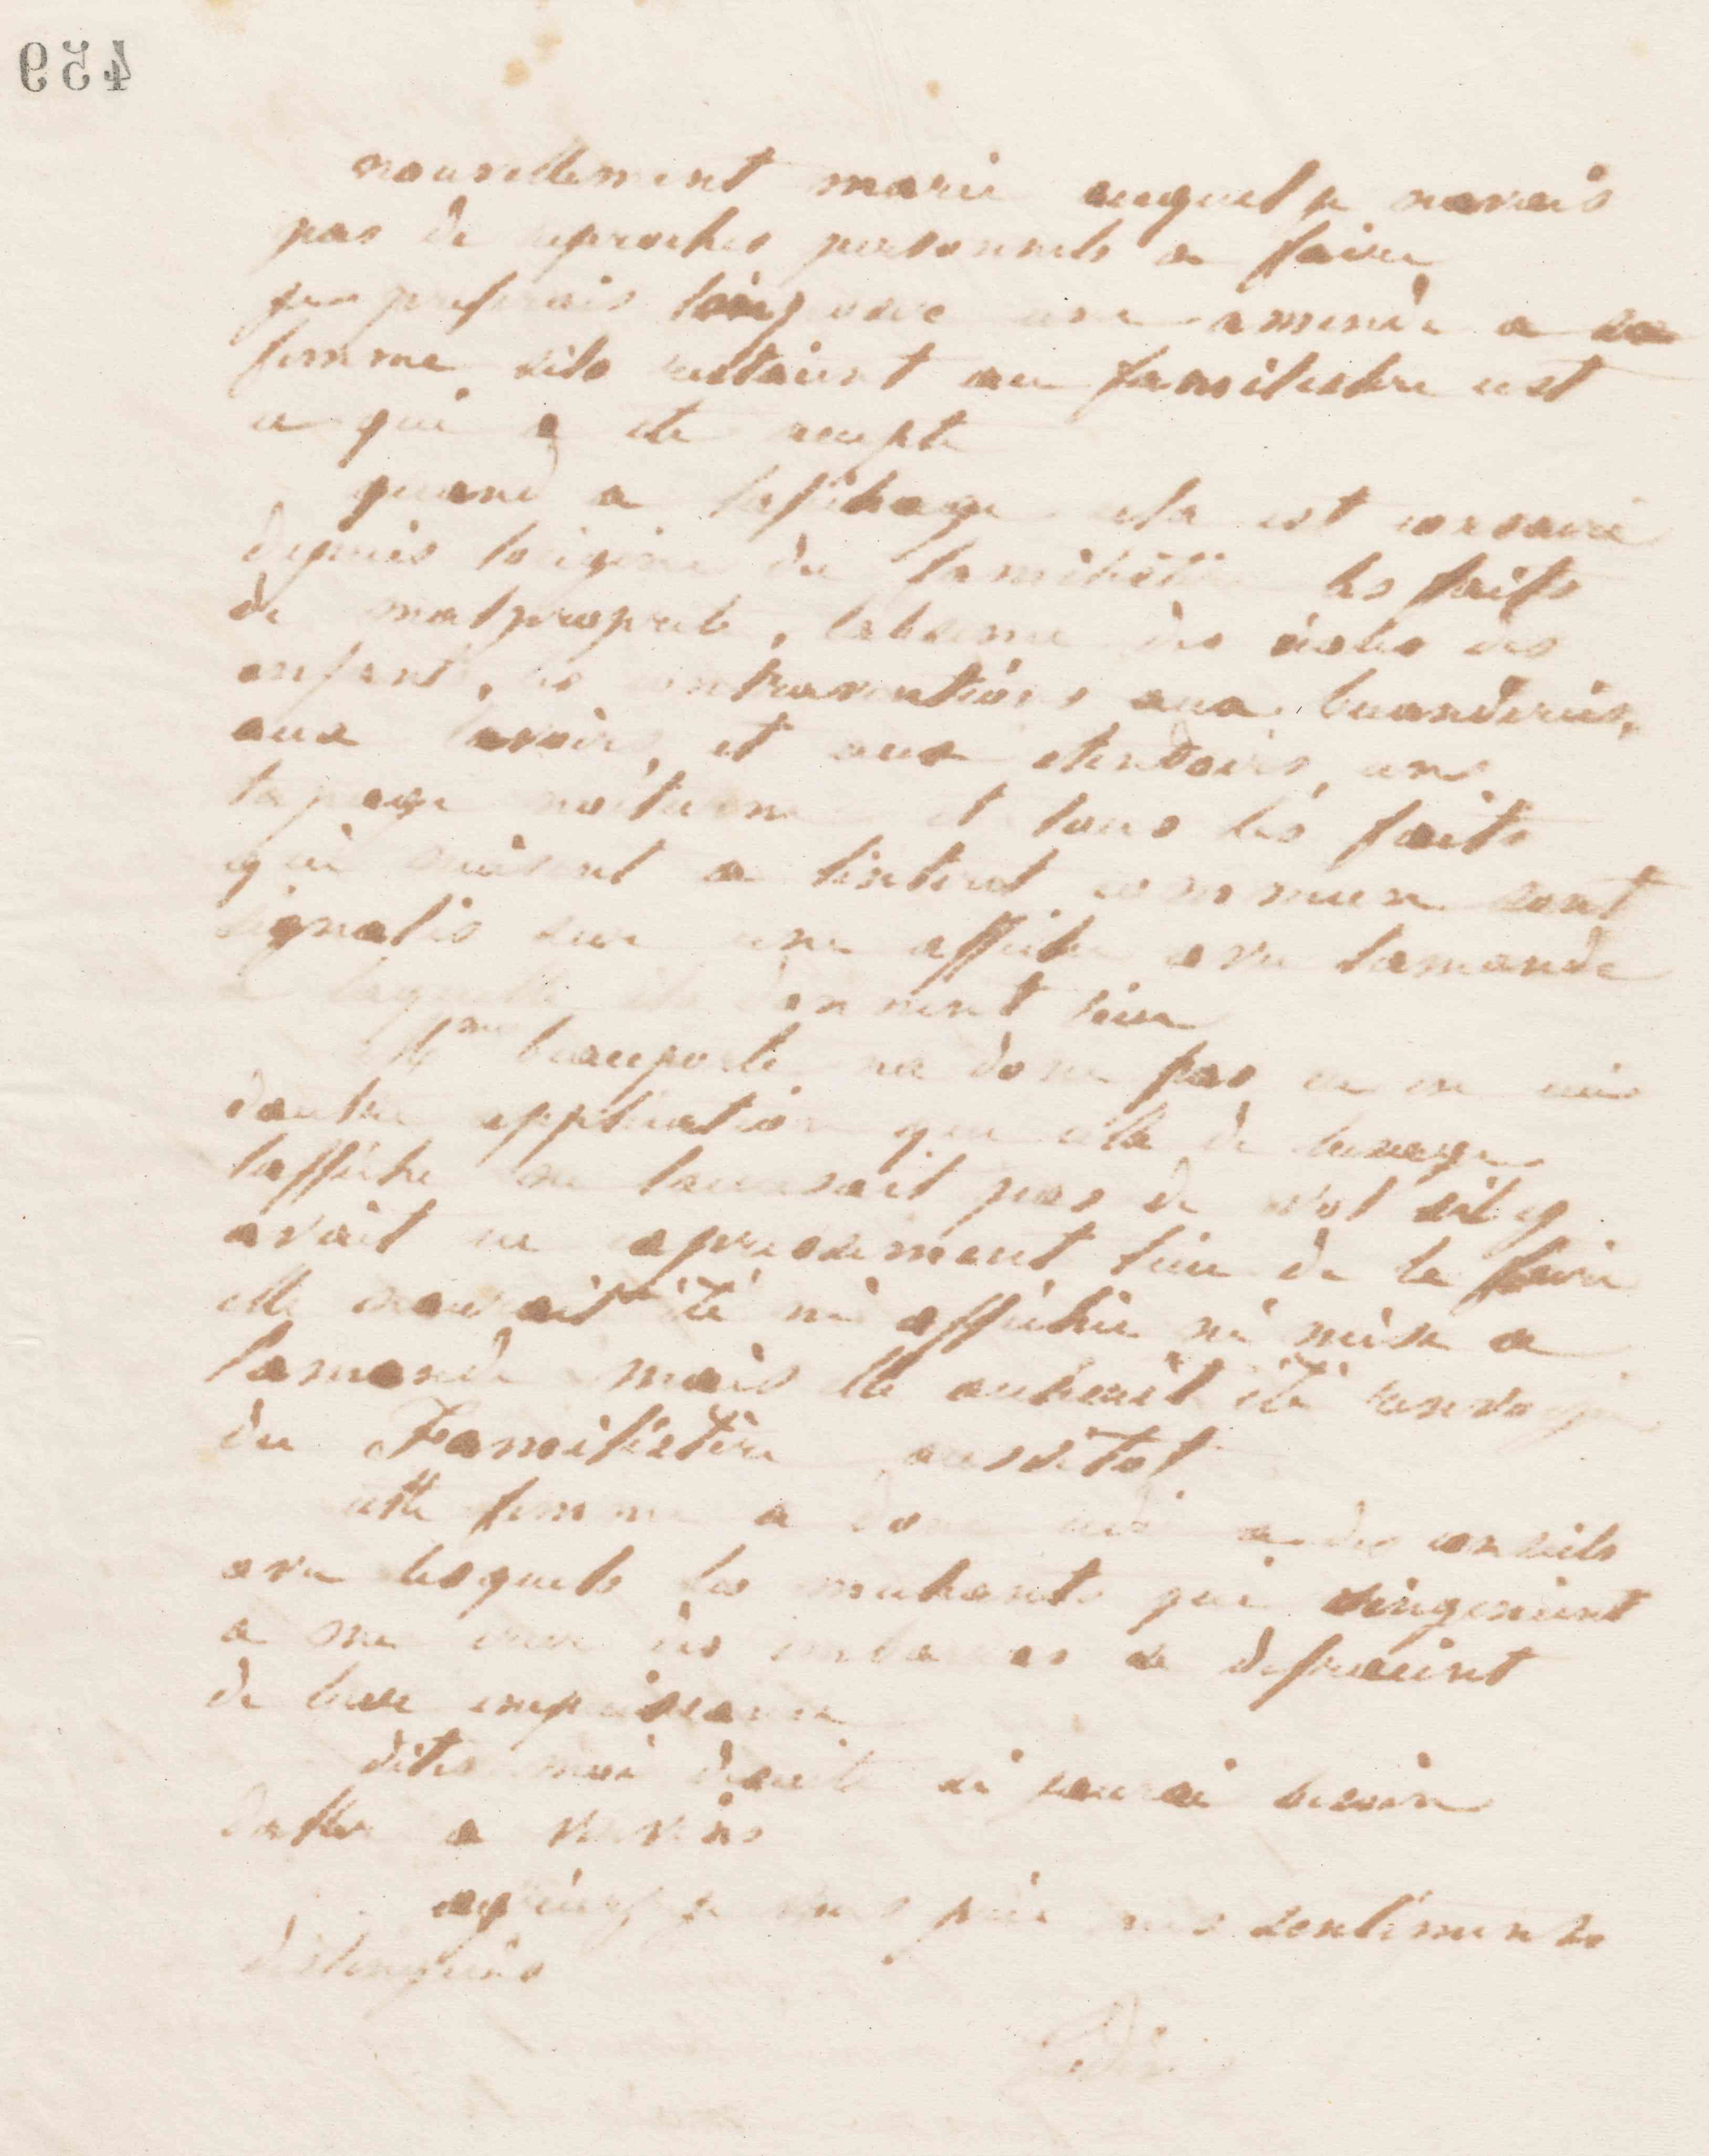 459
nouvellement marié auquel je navais
pas de reproches personnels a faire
je preferais une amende a sa
femme sils restaient au familistere cest
ce qui a été accepté
quand a laffichage cela est consacré
depuis lorigine du familistère les faits
de malpropreté, labsence des écoles des
enfants, les contraventions aux buanderies,
aux lavoirs, et aux étendoirs, au
tapage nocturne et tous les faits
qui nuisent a lintérêt commun sont
signalés sur une affiche avec lamende
a laquelle ils donnent lieu
Mme Beauporté na donc pas eu en ceci
dautre application que cela de lusage
laffiche ne laccusait pas de vol sil y
avait eu expressément lieu de le faire
elle naurait été ni affichée ni mise a
lamende mais elle aurait été renvoyée
du Familistère aussitôt
cette femme a donc cédé a des conseils
avec lesquels les méchants qui singénient
a me créer des embarras se défraient
de leur impuissance
dites moi ensuite si jaurai besoin
daller a Vervins
agréez je vous prie mes sentiments
distingués
Godin